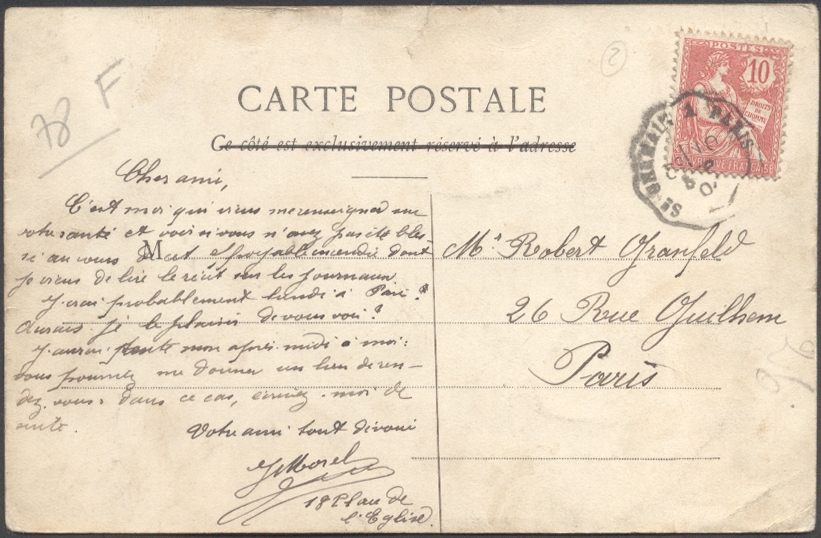 78 F
2
POSTES
10
DROITS DE L'HOMME
ST GERMAIN A PARIS
CARTE POSTALE
Ce côté est exclusivement réservé à l'adresse
M
Cher ami,
C'est moi qui viens me renseigner sur
votre santé et voir si vous n'avez pas été bles-
sé au cours de cet effroyable incendie dont
je viens de lire le récit sur les journaux
J'irai probablement lundi à Paris
Aurais-je le plaisir de vous voir?
J'aurai toute mon après-midi à moi:
vous pourriez me donner un lieu de ren-
dez-vous: dans ce cas, écrivez-moi de
suite.
Votre ami tout dévoué
Morel
18 Place de
l'Eglise.
Mr Robert Granfeld
26 Rue Guilhem
Paris